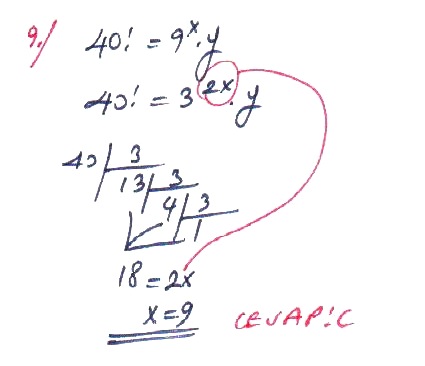 9./ 40! = 9^x . y
40! = 3^2x . y
40 | 3
13 | 3
4 | 3
1
18 = 2x
x = 9 CEVAP: C